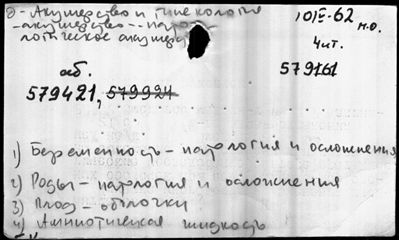 Э - Акушерство и гинекология
- акушерство -- пато-
логическое акушер
10/II-62
н.о.
Чит.
аб.
579161
579421, 579921
1) Беременность - патология и осложнения
2) Роды - патология и осложнения
3) Плод - оболочки
4) Амниотическая жидкость